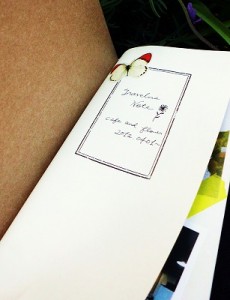 Traveling
Note
cafe and flower
2012 0401~